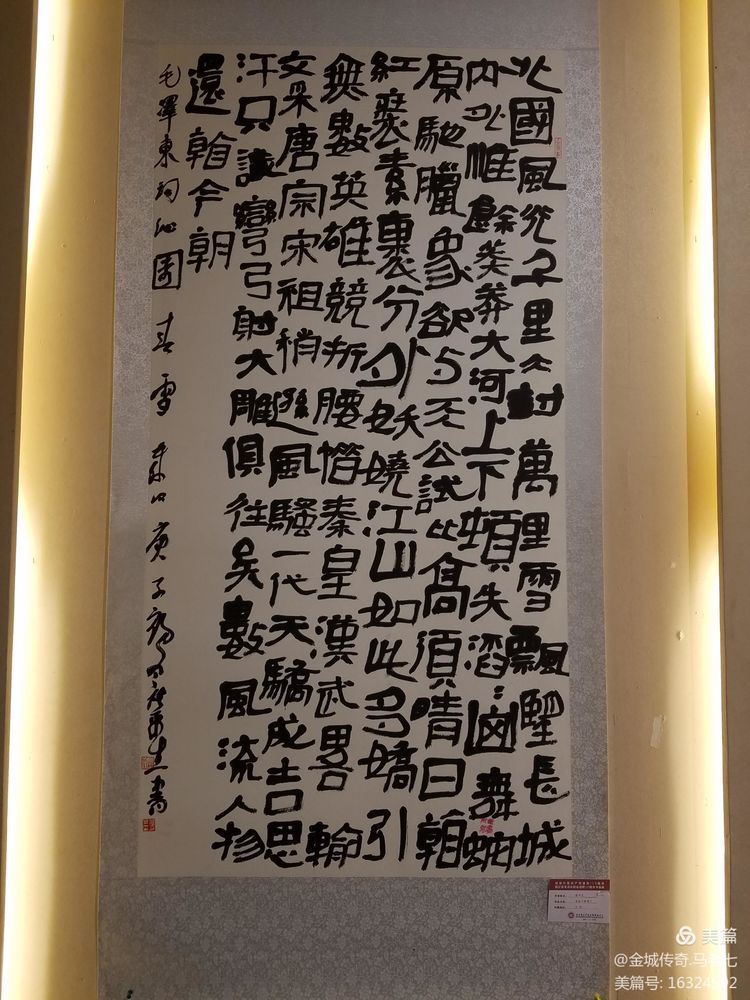 北國風光千里冰封萬里雪飄望長城
内外惟餘莽莽大河上下頓失滔滔山舞銀蛇
原馳臘象欲与天公試比高須晴日看
紅裝素裹分外妖嬈江山如此多嬌引
無數英雄競折腰惜秦皇漢武畧輸
文采唐宗宋祖稍遜風騷一代天驕成吉思
汗只識彎弓射大雕俱往矣數風流人物
還看今朝
毛澤東詞沁園春雪 歲次庚子 書
美篇
@金城传奇.马 七
美篇号: 16324